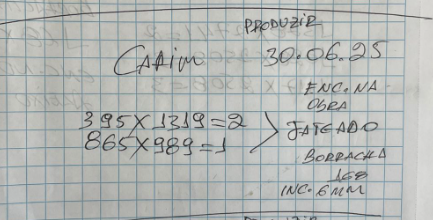 PRODUZIR
CAAIM 30.06.25
ENC. NA
OBRA
395X1319=2
865X989=1
JATEADO
BORRACHA
168
INC. 6MM